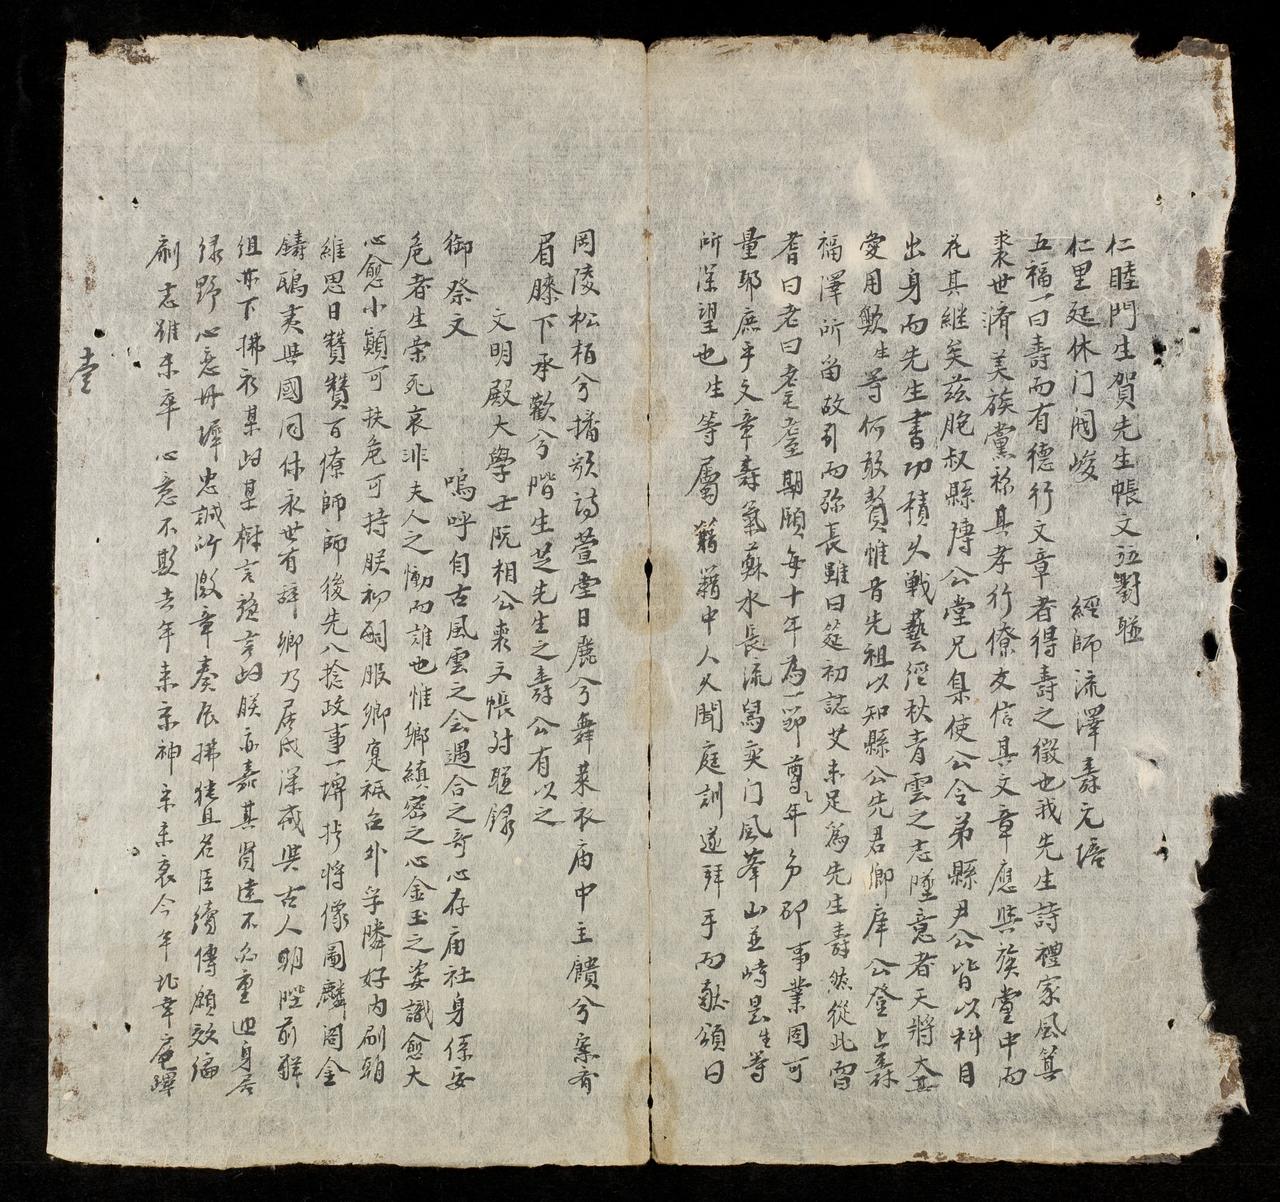 仁睦門生賀先生帳文並對聯
仁里延休门阀峻 經師流澤壽元培
五福一曰壽而有德行文章者得壽之徵也我先生詩禮家風箕
裘世濟美族黨称其孝行僚友信其文章應與簇堂中而
花其継矣茲胞叔縣博公堂兄臬使公令弟縣尹公皆以科目
出身而先生書功積久戰藝經秋青雲之志墜意者天將大其
愛用歟生等何敢贅惟昔先祖以知縣公先君鄉庠公登上壽
福澤所留故引而弥長雖曰筵初誌艾未足為先生壽然從此曾
耆曰老曰耄耋期頤每十年為一節尊年多卲事業固可
量耶庶乎文章壽氣蘇水長流舄奕门風峯山並峙是生等
所深望也生等屬籍籍中人久聞庭訓遂拜手而献頌曰
岡陵松栢兮播歌詩萱堂日麗兮舞菜衣庙中主饋兮案齊
眉膝下承歡兮階生芝先生之壽公有以之
文明殿大學士阮相公喪文帳対聯録
御祭文 嗚呼自古風雲之会遇合之奇心存庙社身係安
危者生栄死哀非夫人之慟而誰也惟鄉縝密之心金玉之姿識愈大
心愈小顛可扶危可持朕初嗣服鄉寔祗台外孚隣好内刷朝
維思日贊贊百僚師師後先八稔政事一埤拧将像圖麟阁金
鑄鴟夷與國同休永世有辞鄉乃居成深戒與古人明陛前觧
组亦下拂衣某歧某樹言旋言歧朕亦嘉其賢達不忽重迎身居
绿野心恋丹墀忠誠所激章奏辰拂徒且名臣續傳願效編
劘志雖未卒心意不欺去年来京神采未衰今年北幸庵蹕
壹